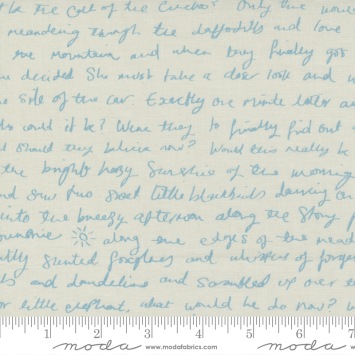 be the Call of the Cuckoo? Only the
meandering through the daffodills and love
the mountain and when they finally got
he decided She must take a closer look and
the side of the car. Exactly one minute later
who could it be? Were they to finally find out
should they believe now? Would this really be
the bright hazy Sunshine of the morning
and saw two sweet little blackbirds dancing
into the breezy afternoon along the Stony
along the edges of the
foxgloves and
and dandelions and scrambled up over
or little elephant, what would he do now?
1 2 3 4 5 6 7
moda www.modafabrics.com moda